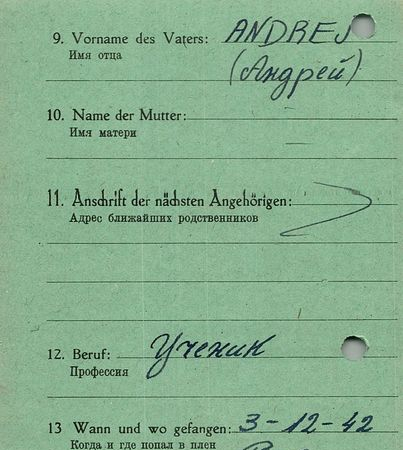 9. Vorname des Vaters: ANDREJ
Имя отца (Андрей)
10. Name der Mutter: —
Имя матери —
11. Anschrift der nächsten Angehörigen:
Адрес ближайших родственников
12. Beruf: Ученик
Профессия
13 Wann und wo gefangen: 3-12-42
Когда и где попал в плен